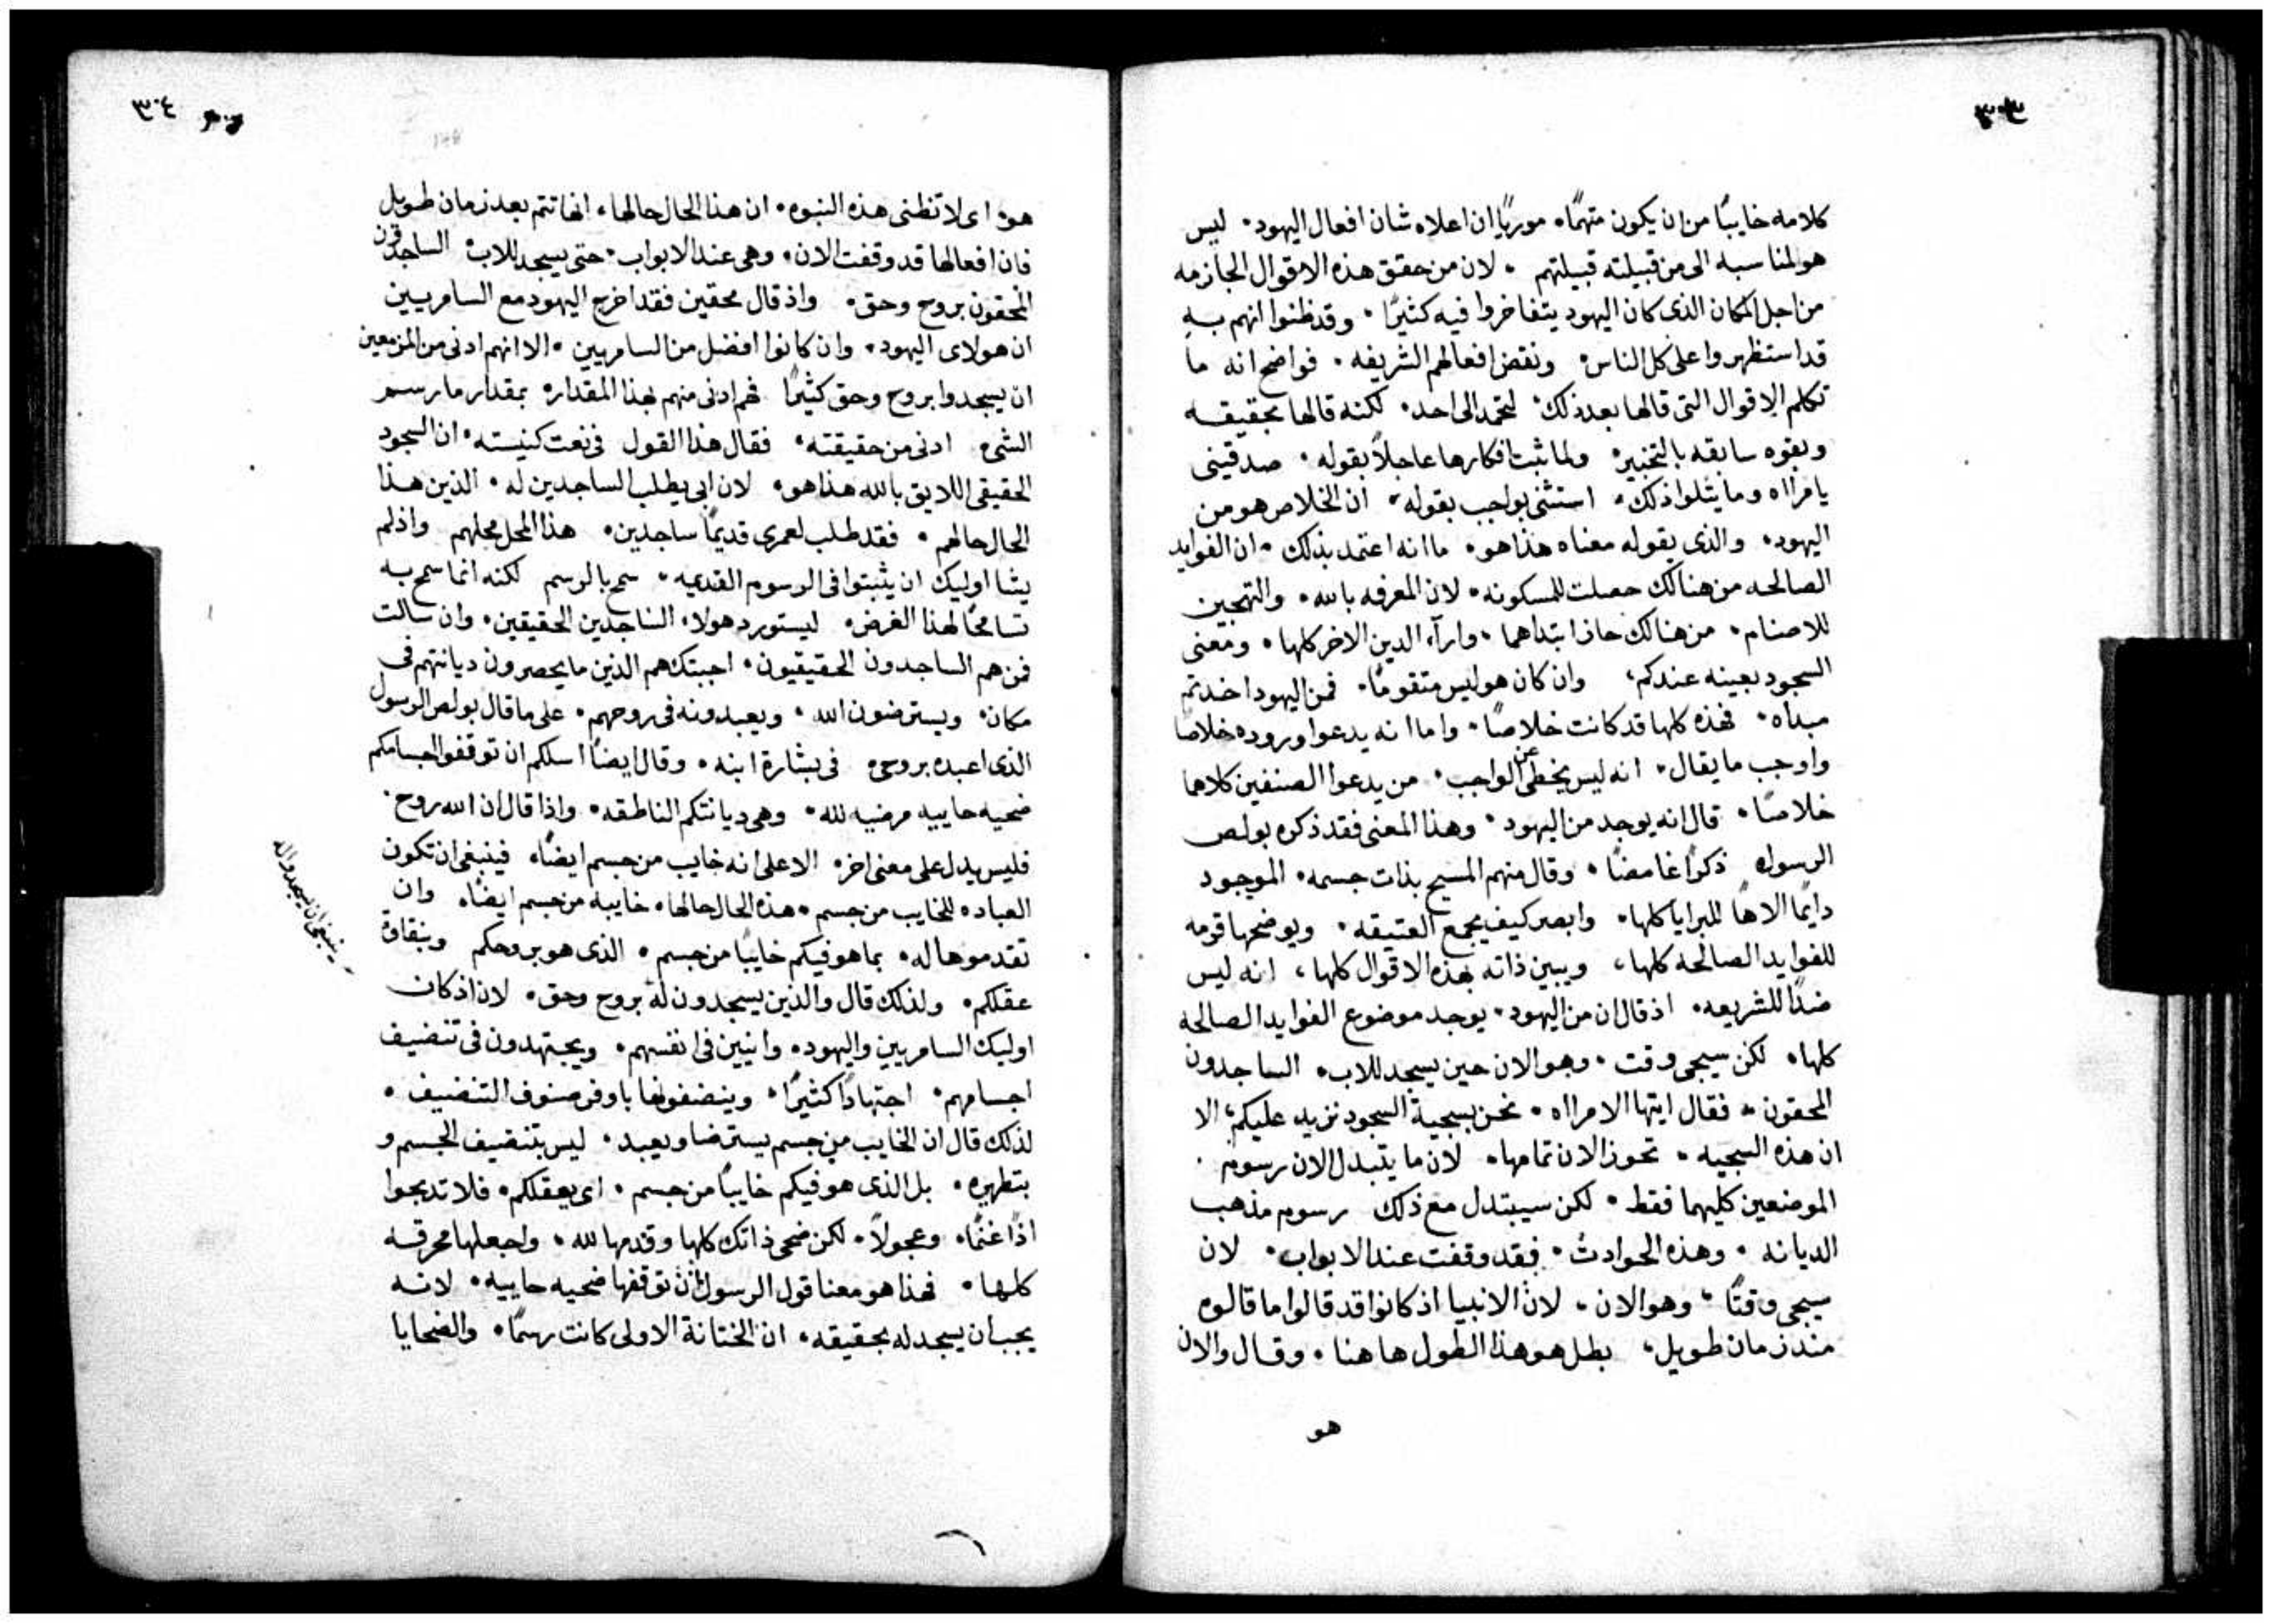 ٣٠٣
كلامه خايبًا من ان يكون متهمًا، موريًا ان اعلاه شان افعال اليهود. ليس
هو لمناسبه الى من قبيلته قبيلتهم. لان من حقق هذه الاقوال الجازمه
من اجل المكان الذى كان اليهود يتفاخروا فيه كثيرًا. وقد ظنوا انهم به
قد استظهروا على كل الناس. ونقض افعالهم الشريفه. فواضح انه ما
تكلم الاقوال التى قالها بعد ذلك. لتحمد الى احد. لكنه قالها بحقيقه
وبقوه سابقه بالتخبير. ولما ثبت افكارها عاجلاً بقوله. صدقينى
يا مرااه وما يتلوا ذلك. استثنى بواجب بقوله. ان الخلاص هو من
اليهود. والذى يقوله معناه هذا هو. ما انه اعتمد بذلك. ان الفوايد
الصالحه من هنالك حصلت للمسكونه. لان المعرفه بالله. والتهجين
للاصنام. من هنالك حازا ابتداهما. وارآء الدين الاخر كلها. ومعنى
السجود بعينه عندكم، وان كان هو ليس متقومًا. فمن اليهود اخدتم
مبداه. فهذه كلها قد كانت خلاصًا. واما انه يدعوا وروده خلاصًا
واوجب ما يقال. انه ليس يخطى عن الواجب. من يدعوا الصنفين كلاهما
خلاصًا. قال انه يوجد من اليهود. وهذا المعنى فقد ذكره بولص
الرسول ذكرًا غامضًا. وقال منهم المسيح بذات جسمه. الموجود
دايمًا الاهًا للبرايا كلها. وابصر كيف يجمع العتيقه. ويوضحها قرمه
للفوايد الصالحه كلها، ويبين ذاته بهذه الاقوال كلها، انه ليس
ضدًا للشريعه. اذ قال ان من اليهود. يوجد موضوع الفوايد الصالحه
كلها. لكن سيجى وقت. وهو الان حين يسجد للاب. الساجدون
المحقون. فقال ايتها الامرااه. نحن بسجية السجود نزيد عليكم، الا
ان هذه السجيه. تحوز الان تمامها. لان ما يتبدل الان رسوم.
الموضعين كليهما فقط. لكن سيبتدل مع ذلك رسوم مذهب
الديانه. وهذه الحوادث. فقد وقفت عند الابواب. لان
سيجى وقتًا. وهو الان. لان الانبيا اذ كانوا قد قالوا ما قالوه
مندزمان طويل، بطل هو هذا الطول هاهنا. وقال والان
هو
٣٠٤
هو. اى لا تظنى هذه النبوه. ان هذا الحال حالها، انها تتم بعد زمان طويل
فان افعالها قد وقفت الان. وهى عند الابواب. حتى يسجد للاب الساجدون
المحقون بروح وحق. واذ قال محقين فقد اخرج اليهود مع السامريين
ان هولاى اليهود. وان كانوا افضل من السامريين. الا انهم ادنى من المزمعين
ان يسجدوا بروح وحق كثيرًا فهم ادنى منهم بهذا المقدار. بمقدار ما رسم
الشى ادنى من حقيقته. فقال هذا القول فى نعت كنيسته. ان السجود
الحقيقى اللايق بالله هذا هو. لان ابى يطلب الساجدين له. الذين هذا
الحال حالهم. فقد طلب لعمرى قديمًا ساجدين. هذا المحل محلهم واذ لم
يشا اوليك ان يثبتوا فى الرسوم القديمه. سمح بالرسم لكنه انما سمح به
تسامحًا لهذا الغرض. ليستورد هولاء الساجدين الحقيقين. وان سالت
فمن هم الساجدون الحقيقيون. اجبتك هم الذين ما يحصرون ديانتهم فى
مكان. ويسترضون الله. ويعبدونه فى روحهم. على ما قال بولص الرسول
الذى اعبده بروحى فى بشارة ابنه. وقال ايضًا اسلكم ان توقفوا اجسامكم
ضحيه حاييه مرضيه لله. وهى ديانتكم الناطقه. واذا قال ان الله روح.
فليس يدل على معنى اخر. الا على انه خايب من جسم ايضًا. فينبغى ان تكون
العباده للخايب من جسم. هذه الحال حالها. خايبه من جسم ايضًا. وان
تقدموها له. بما هو فيكم خايبًا من جسم. الذى هو بروحكم وبنقاوة
عقلكم. ولذلك قال والذين يسجدون له بروح وحق. لان اذ كان
ينبغى ان يسجدوا له
اوليك السامريين واليهود. وانيين فى انفسهم. ويجتهدون فى تنضيف
اجسامهم. اجتهادًا كثيرًا. وينضفونها باوفر صنوف التنضيف.
لذلك قال ان الخايب من جسم يسترضا ويعبد. ليس بتنضيف الجسم و
بتطهيره. بل الذى هو فيكم خايبًا من جسم. اى بعقلكم. فلا تدبحوا
اذًا غنمًا. وعجولاً. لكن ضحى ذاتك كلها وقدمها لله. واجعلها محرقه
كلها. فهذا هو معنا قول الرسول ان توقفها ضحيه حاييه. لانه
يجب ان يسجد له بحقيقه. ان الختانة الاولى كانت رسمًا. والضحايا